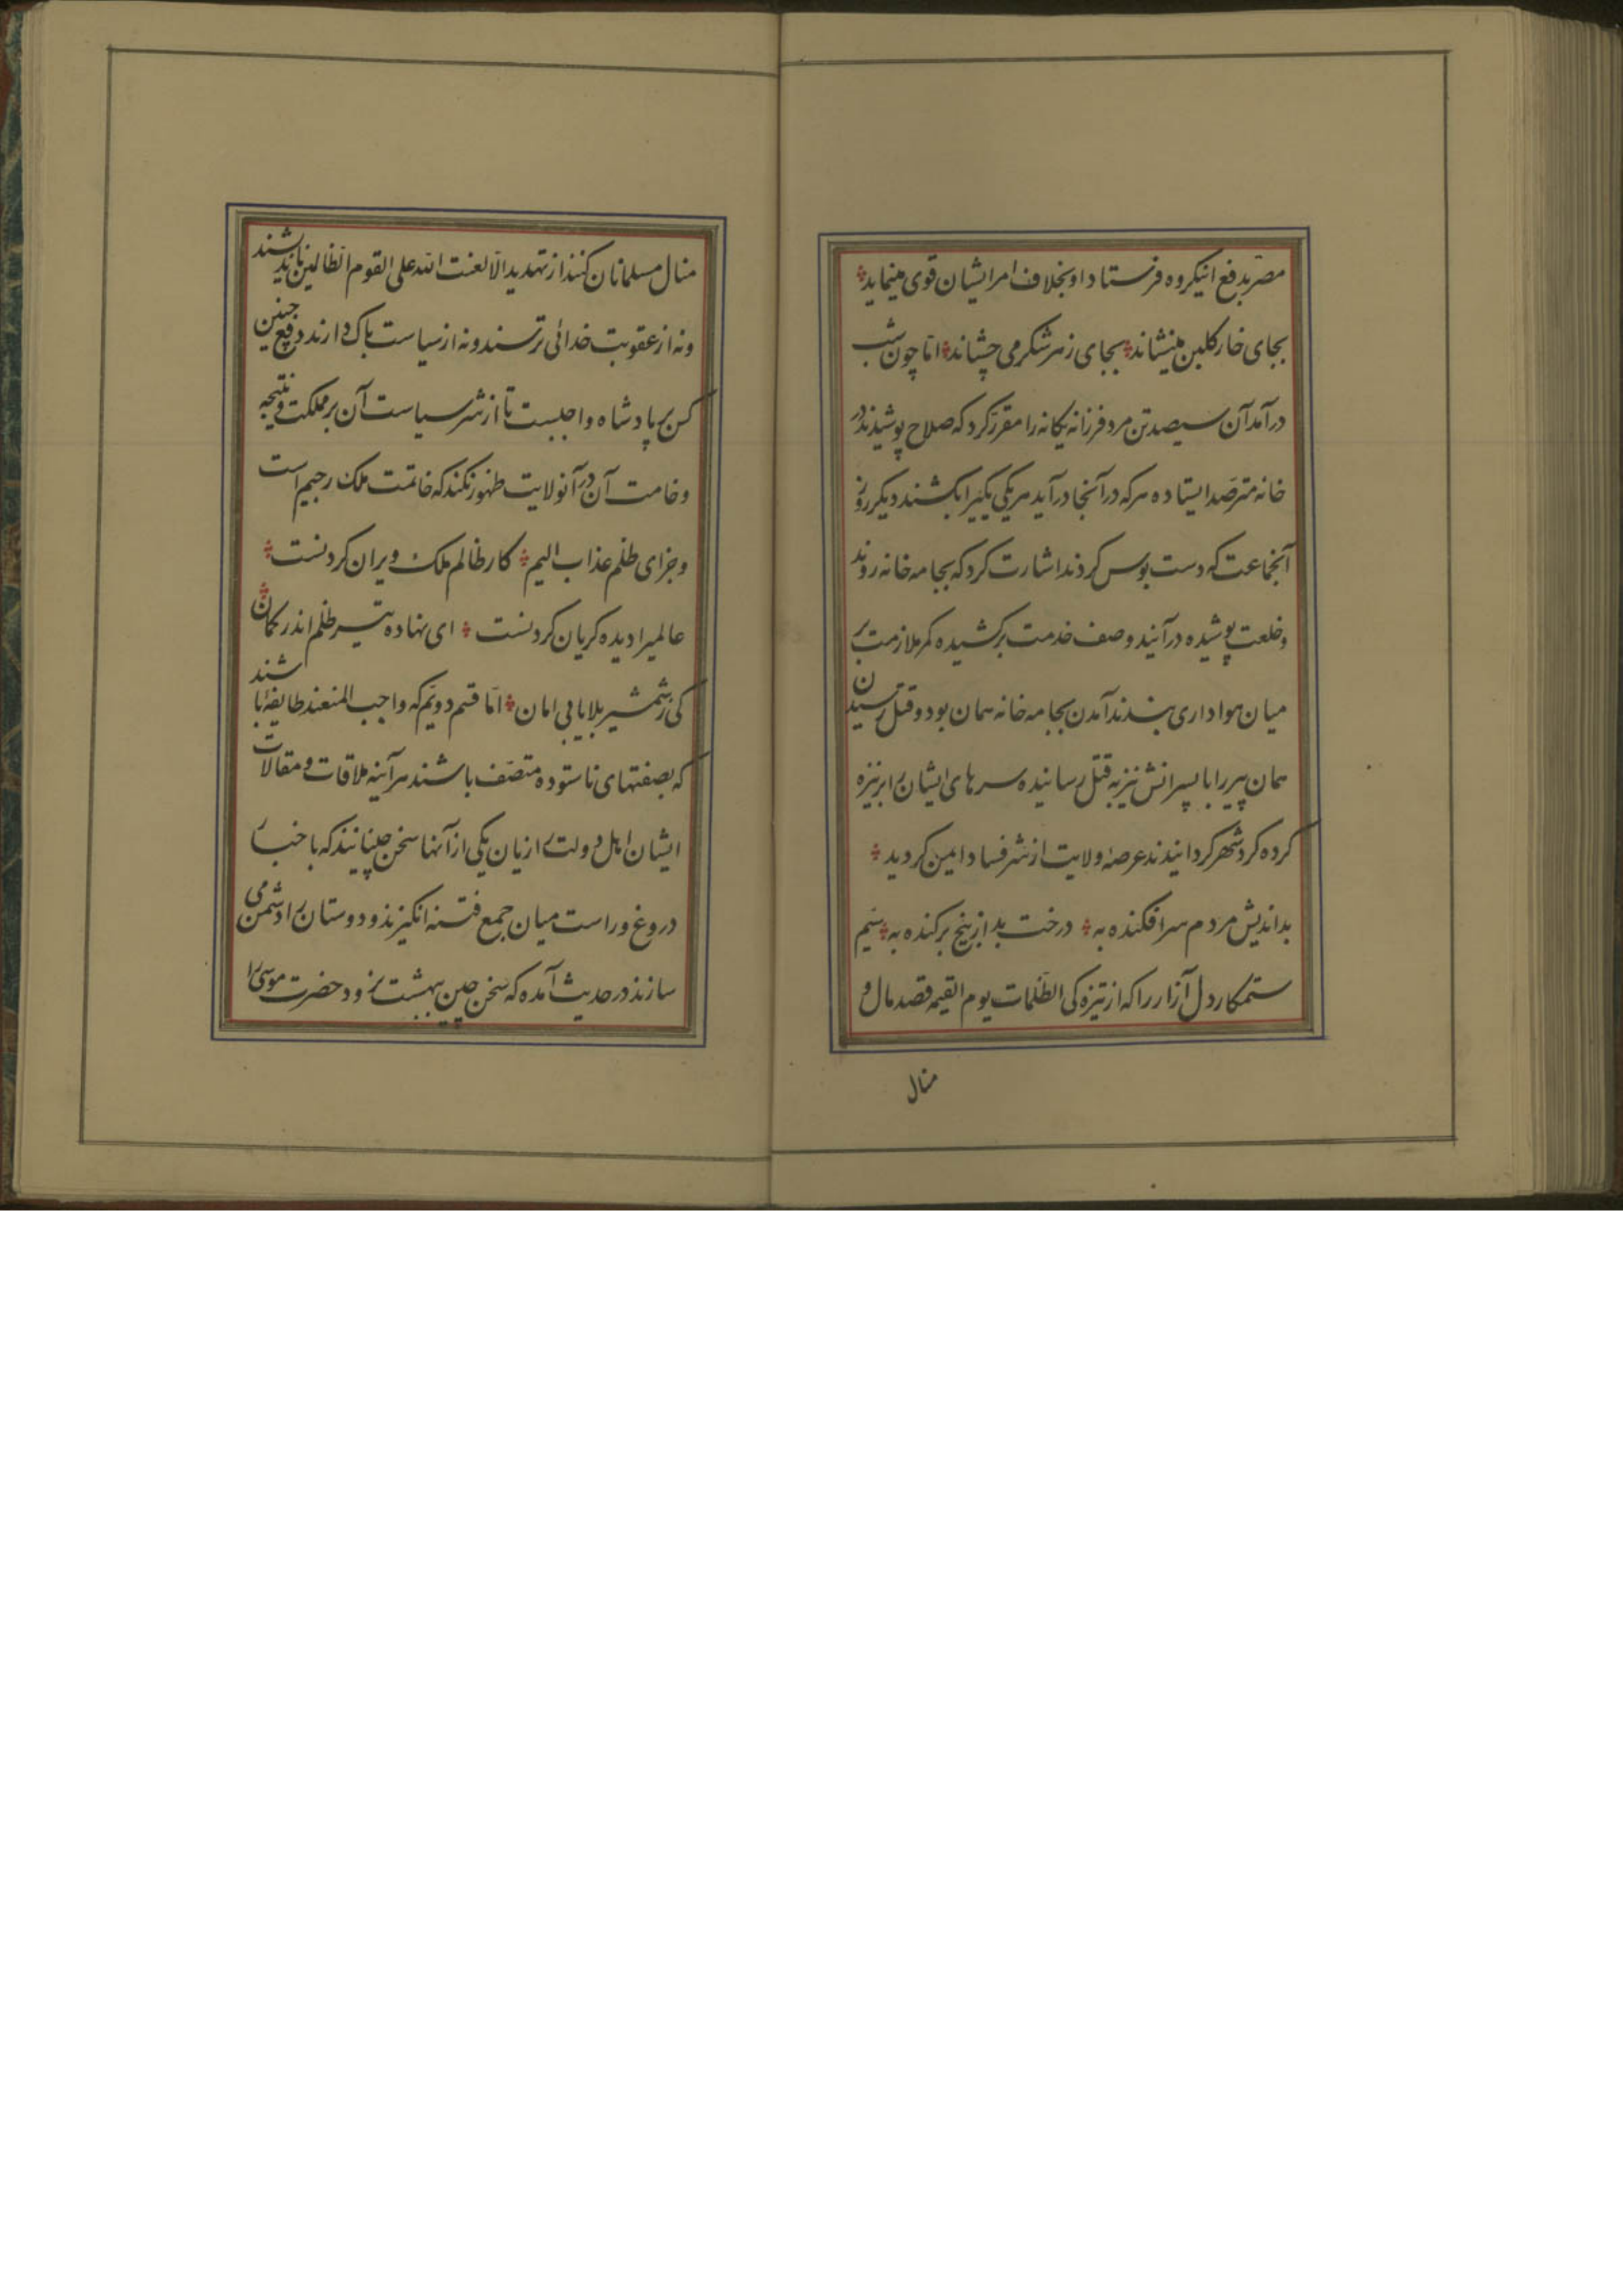 مصر بدفع اینکروه فرستاد او بخلاف امر ایشان قوی مینماید
بجای خار کلبن مینشاند بجای زهر شکر می چشاند اما چون شب
درآمد آن سیصد تن مرد فرزانه یکانه را مقرر کرد که صلاح پوشیدند در
خانه مترصد ایستاده هر که در آنجا درآید هر یکی یکیرا بکشند دیکر روز
آنجماعت که دست بوس کردند اشارت کرد که بجامه خانه روند
و خلعت پوشیده درآیند و صف خدمت برکشیده کمر ملازمت بر
میان هواداری بندند آمدن بجامه خانه همان بود و قتل رسیدن
همان پیر را با پسرانش نیز به قتل رسانیده سرهای ایشان را بر نیزه
کرده کرد شهر کردانیدند عرصه ولایت از شر فساد ایمن کردید
بد اندیش مردم سر افکنده به درخت بد از بیخ برکنده به سیم
ستمکار دل آزار را که از تیزه کی الظلمات یوم القیمه قصد مال و
منال
منال مسلمانان کنند از تهدید الا لعنت الله علی القوم الظالمین
ونه از عقوبت خدائی ترسند و نه از سیاست باک دارند دفع چنین
کس بر پادشاه واجبست تا از شر سیاست آن بر مملکت و نتیجه
وخامت آن در آنولایت ظهور نکند که خاتمت ملک رحیم است
و جزای ظلم عذاب الیم کار ظالم ملک ویران کردنست
عالمیرا دیده کریان کردنست ای نهاده تیر ظلم اندر کمان
کی ز شمشیر بلا یابی امان اما قسم دویم که واجب المنعند طایفهٔ باشند
که بصفتهای ناستوده متصف باشند هر آینه ملاقات و مقالات
ایشان اهل دولت را زیان یکی از آنها سخن چینانند که با خبار
دروغ و راست میان جمع فتنه انکیزند و دوستان را دشمن می
سازند در حدیث آمده که سخن چین ببهشت نرود حضرت موسی را